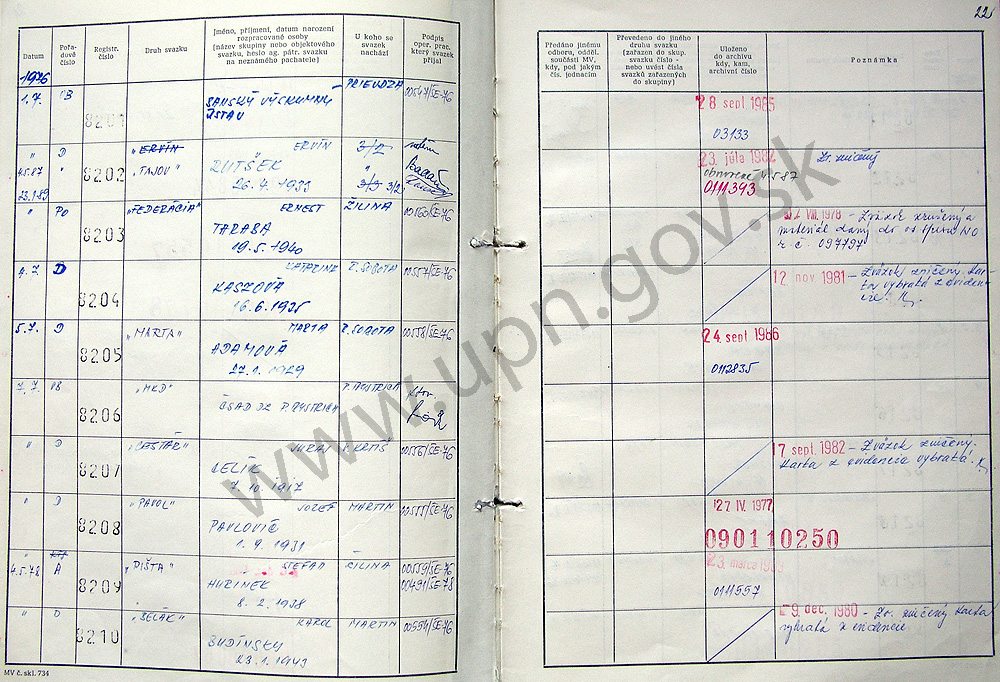 Datum
Pořadové číslo
Registr. číslo
Druh svazku
Jméno, příjmení, datum narození rozpracované osoby (název skupiny nebo objektového svazku, heslo ag. pátr. svazku na neznámého pachatele)
U koho se svazek nachází
Podpis oper. prac. který svazek přijal
1976
1.7. OB 8201 BANSKÝ VÝSKUMNÝ ÚSTAV PRIEVDZA 00547/ŠE-76
" D 8202 "ERVÍN" ERVÍN 3/2
4.5.87 " "TAJOV" "
23.1.89 26.4.1933 3/3 3/2
" PO 8203 "FEDERÁCIA" ERNEST ŽILINA 00560/ŠE-76
TARABA
19.5.1940
4.7. D 8204 R. SOBOTA 00557/ŠE-76
KASZOVÁ
16.6.1935
5.7. D 8205 "MARTA" MARTA R. SOBOTA 00558/ŠE-76
ADAMOVÁ
27.1.1929
7.7. OB 8206
" D 8207 JURAJ 00556/ŠE-76
7.10.1917
" D 8208 "PAVOL" JOZEF MARTIN 00555/ŠE-76
PAVLOVIČ
1.9.1931
4.5.78 A 8209 "PIŠTA" ŠTEFAN ŽILINA 00559/ŠE-76
HURINEK 00491/ŠE-78
8.2.1938
" D 8210 KAROL MARTIN 00554/ŠE-76
BUDÍNSKY
23.1.1943
MV č. skl. 734
22
Předáno jinému odboru, odděl. součásti MV, kdy, pod jakým čís. jednacím
Převedeno do jiného druhu svazku (zařazon do skup. svazku číslo - nebo uvést čísla svazků zařazených do skupiny)
Uloženo do archivu kdy, kam, archivní číslo
Poznámka
28 sept 1985
03133
23. júla 1982 Zv. zničený
0111393
VIII. 1978 - Zväzok zrušený a
materiál daný do os. spisu NO
r. č. 097797
12 nov 1981 - Zväzok zničený. Kar-
ta vybratá z eviden-
cie.
24. sept 1986
0112835
17 sept. 1982 - Zväzok zničený.
Karta z evidencie vybratá.
27 IV. 1977
090110250
23. marca
0111557
-9. dec. 1980 - Zv. zničený karta
vybratá z evidencie
www.upn.gov.sk